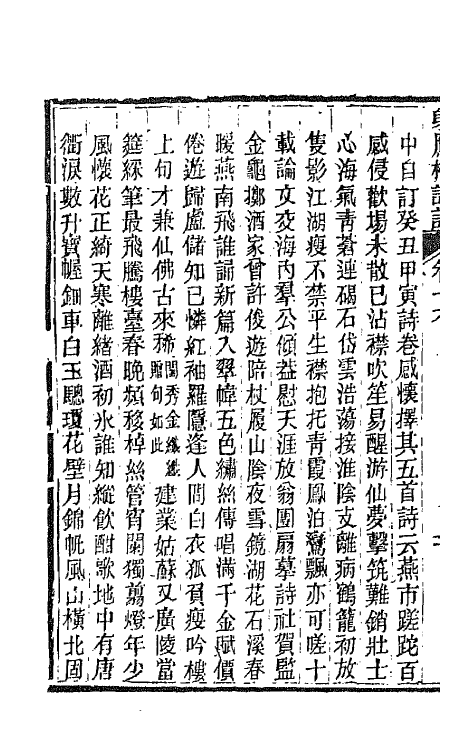 中自訂癸丑甲寅詩卷感懷擇其五首詩云燕市蹉跎百
感侵歡場未散已沾襟吹笙易醒游仙夢擊筑難銷壯士
心海氣靑蒼連碣石岱雲浩蕩接淮陰支離病鶴籠初放
隻影江湖瘦不禁平生襟抱托靑霞鳳泊鸞飄亦可嗟十
載論文交海內羣公傾葢慰天涯放翁團扇摹詩社賀監
金龜擲酒家曾許俊遊陪杖履山陰夜雪鏡湖花石溪春
暖燕南飛誰誦新篇入翠幃五色繡絲傳唱滿千金賦價
倦遊歸盧儲知已憐紅袖羅隱逢人問白衣孤負瘦吟樓
上句才兼仙佛古來稀閨秀金纖纖贈句如此建業姑蘇又廣陵當
筵綵筆最飛騰樓臺春晚頻移棹絲管宵闌獨翦燈年少
風懷花正綺天寒離緒酒初氷誰知縱飲酣歌地中有唐
衢淚數升寶幄鈿車白玉驄瓊花璧月錦帆風山橫北固